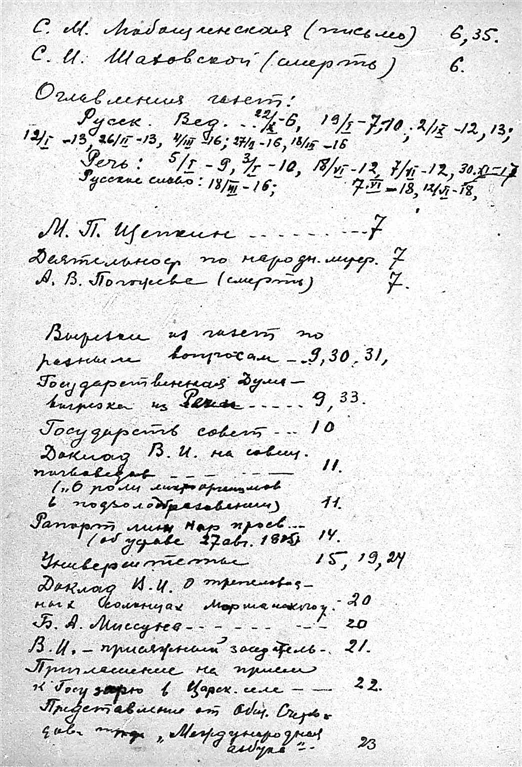 С. М. Любощинская (письмо) 6, 35.
С. И. Шаховской (смерть) 6.
Оглавления газет:
Русск. Вед. 22/X-6, 19/I-7,10; 2/IX-12, 13;
12/I-13, 26/II-13, 4/III-16; 27/X-16, 18/III-16
Речь: 5/I-9, 3/I-10, 18/VI-12, 7/VI-12, 30.XI-17
Русское слово: 18/III-16; 7.VI-18, 12/VI-18,
М. П. Щепкин 7
Деятельность по народн. 7
А. В. Погожева (смерть) 7.
Вырезки из газет по
разным вопросам - 9, 30, 31,
Государственная Дума -
вырезка из Речи 9, 33.
Государств совет 10
Доклад В. И. на совещ.
почвоведов 11.
(„О роли микроорганизмов
в подзолообразовании) 11.
Рапорт мин нар просв
(об уставе 27 авг. 1905) 14.
Университетые 15, 19, 24
Доклад В. И. О
ных солонцах Моршанского у. 20
Б. А. Миссуна 20
В. И. - присяжный заседатель. 21.
Приглашение на прием
к Государю в Царск. селе 22.
Представление от Общ.
„Международная
азбука" 23